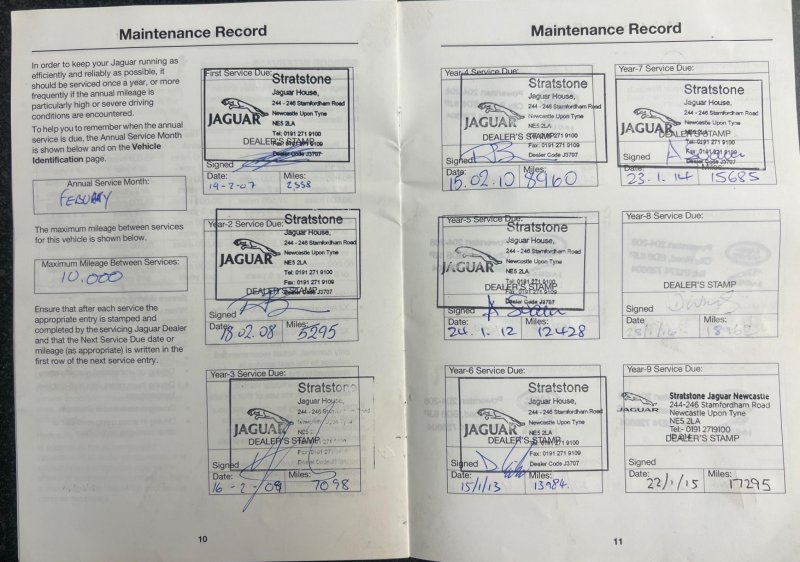 Maintenance Record
In order to keep your Jaguar running as
efficiently and reliably as possible, it
should be serviced once a year, or more
frequently if the annual mileage is
particularly high or severe driving
conditions are encountered.
To help you to remember when the annual
service is due, the Annual Service Month
is shown below and on the Vehicle
Identification page.
Annual Service Month:
The maximum mileage between services
for this vehicle is shown below.
Maximum Mileage Between Services:
10.000
Ensure that after each service the
appropriate entry is stamped and
completed by the servicing Jaguar Dealer
and that the Next Service Due date or
mileage (as appropriate) is written in the
first row of the next service entry.
First Service Due:
Stratstone
Jaguar House,
244 - 246 Stamfordham Road
Newcastle Upon Tyne
NE5 2LA
Tel: 0191 271 9100
Fax: 0191 271 9109
Dealer Code J3707
JAGUAR
DEALER'S STAMP
Signed
Date: Miles:
19-2-07 2558
Year-2 Service Due:
Stratstone
Jaguar House,
244 - 246 Stamfordham Road
Newcastle Upon Tyne
NE5 2LA
Tel: 0191 271 9100
Fax: 0191 271 9109
Dealer Code J3707
JAGUAR
DEALER'S STAMP
Signed
Date: Miles:
18.02.08 5295
Year-3 Service Due:
Stratstone
Jaguar House,
244 - 246 Stamfordham Road
Newcastle Upon Tyne
JAGUAR
DEALER'S STAMP
Signed
Date: Miles:
16-2-09 7098
10
Maintenance Record
Year-4 Service Due:
Stratstone
Jaguar House,
244 - 246 Stamfordham Road
Newcastle Upon Tyne
NE5 2LA
Tel: 0191 271 9100
Fax: 0191 271 9109
Dealer Code J3707
JAGUAR
DEALER'S STAMP
Signed
Date: Miles:
15.02.10 8960
Year-5 Service Due:
Stratstone
Jaguar House,
244 - 246 Stamfordham Road
Newcastle Upon Tyne
NE5 2LA
Tel: 0191 271 9100
Fax: 0191 271 9109
Dealer Code J3707
JAGUAR
DEALER'S STAMP
Signed
Date: Miles:
24.1.12 12428
Year-6 Service Due:
Stratstone
Jaguar House,
244 - 246 Stamfordham Road
Newcastle Upon Tyne
NE5 2LA
Tel: 0191 271 9100
Fax: 0191 271 9109
Dealer Code J3707
JAGUAR
DEALER'S STAMP
Signed
Date: Miles:
15/1/13 13984.
Year-7 Service Due:
Stratstone
Jaguar House,
244 - 246 Stamfordham Road
Newcastle Upon Tyne
NE5 2LA
Tel: 0191 271 9100
Fax: 0191 271 9109
Dealer Code J3707
JAGUAR
DEALER'S STAMP
Signed
Date: Miles:
23.1.14 15685
Year-8 Service Due:
DEALER'S STAMP
Signed
Date: Miles:
Year-9 Service Due:
Stratstone Jaguar Newcastle
244-246 Stamfordham Road
Newcastle Upon Tyne
NE5 2LA
Tel:- 0191 2719100
JAGUAR
DEALER'S STAMP
Signed
Date: Miles:
22/1/15 17295
11